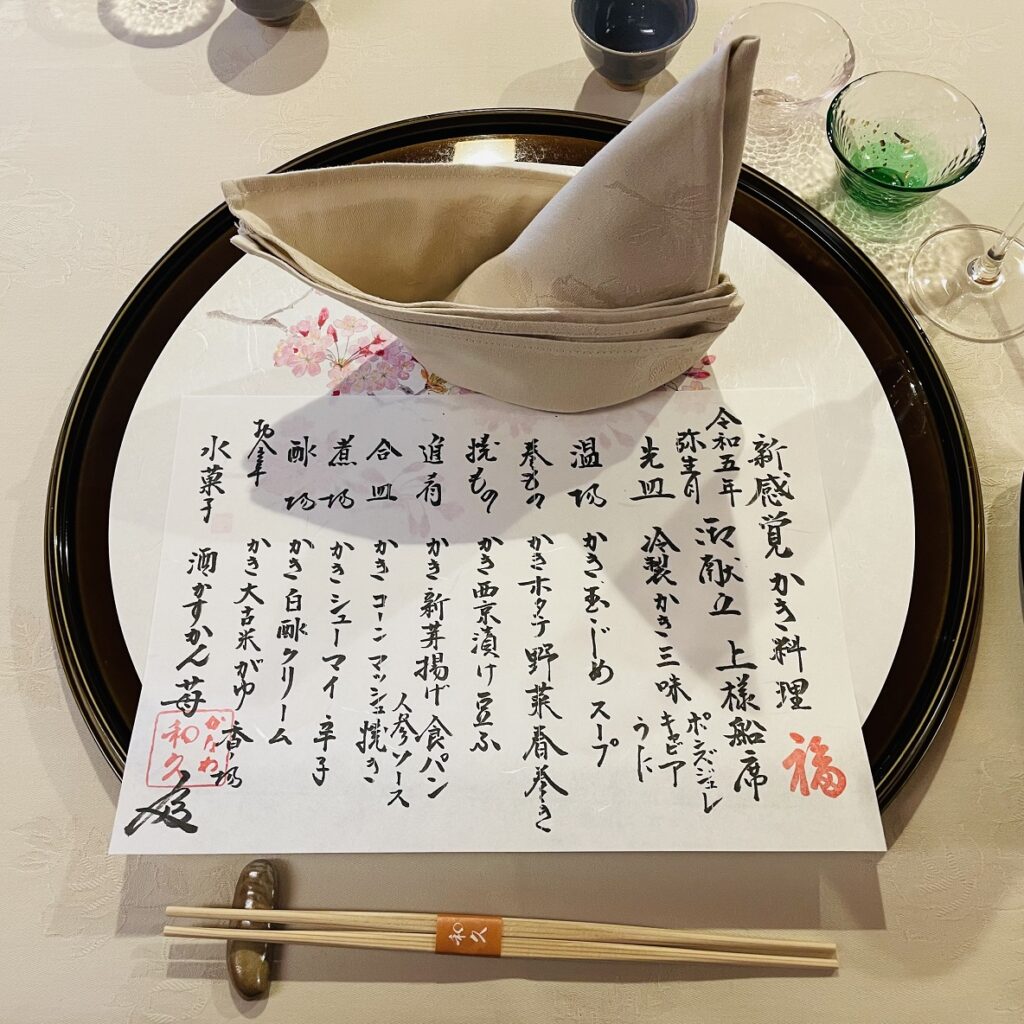 新感覚 かき料理
福
令和五年
弥生月
御献立 上様船席
先皿 冷製かき三味 ポンズジュレ
キャビア
うに
温場 かき玉じめスープ
巻もの かきホタテ野菜春巻き
焼もの かき西京漬け 豆ふ
進肴 かき新芽揚げ 食パン
人参ソース
合皿 かきコーンマッシュ焼き
煮場 かきシューマイ 辛子
酢場 かき白酢クリーム
お食事 かき大古米がゆ 香の場
水菓子 酒かすかん 苺
かなわ
和久
和久